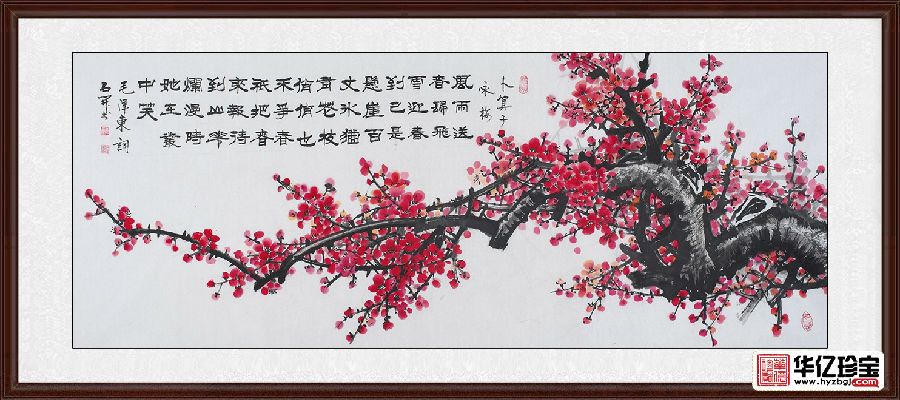 卜算子
咏梅
風雨送
春歸飛
雪迎春
到已是
懸崖百
丈冰猶
有花枝
俏俏也
不爭春
祇把春
來報待
到山花
爛漫時
她在叢
中笑
毛澤東詞
华亿珍宝
www.hyzbgj.com